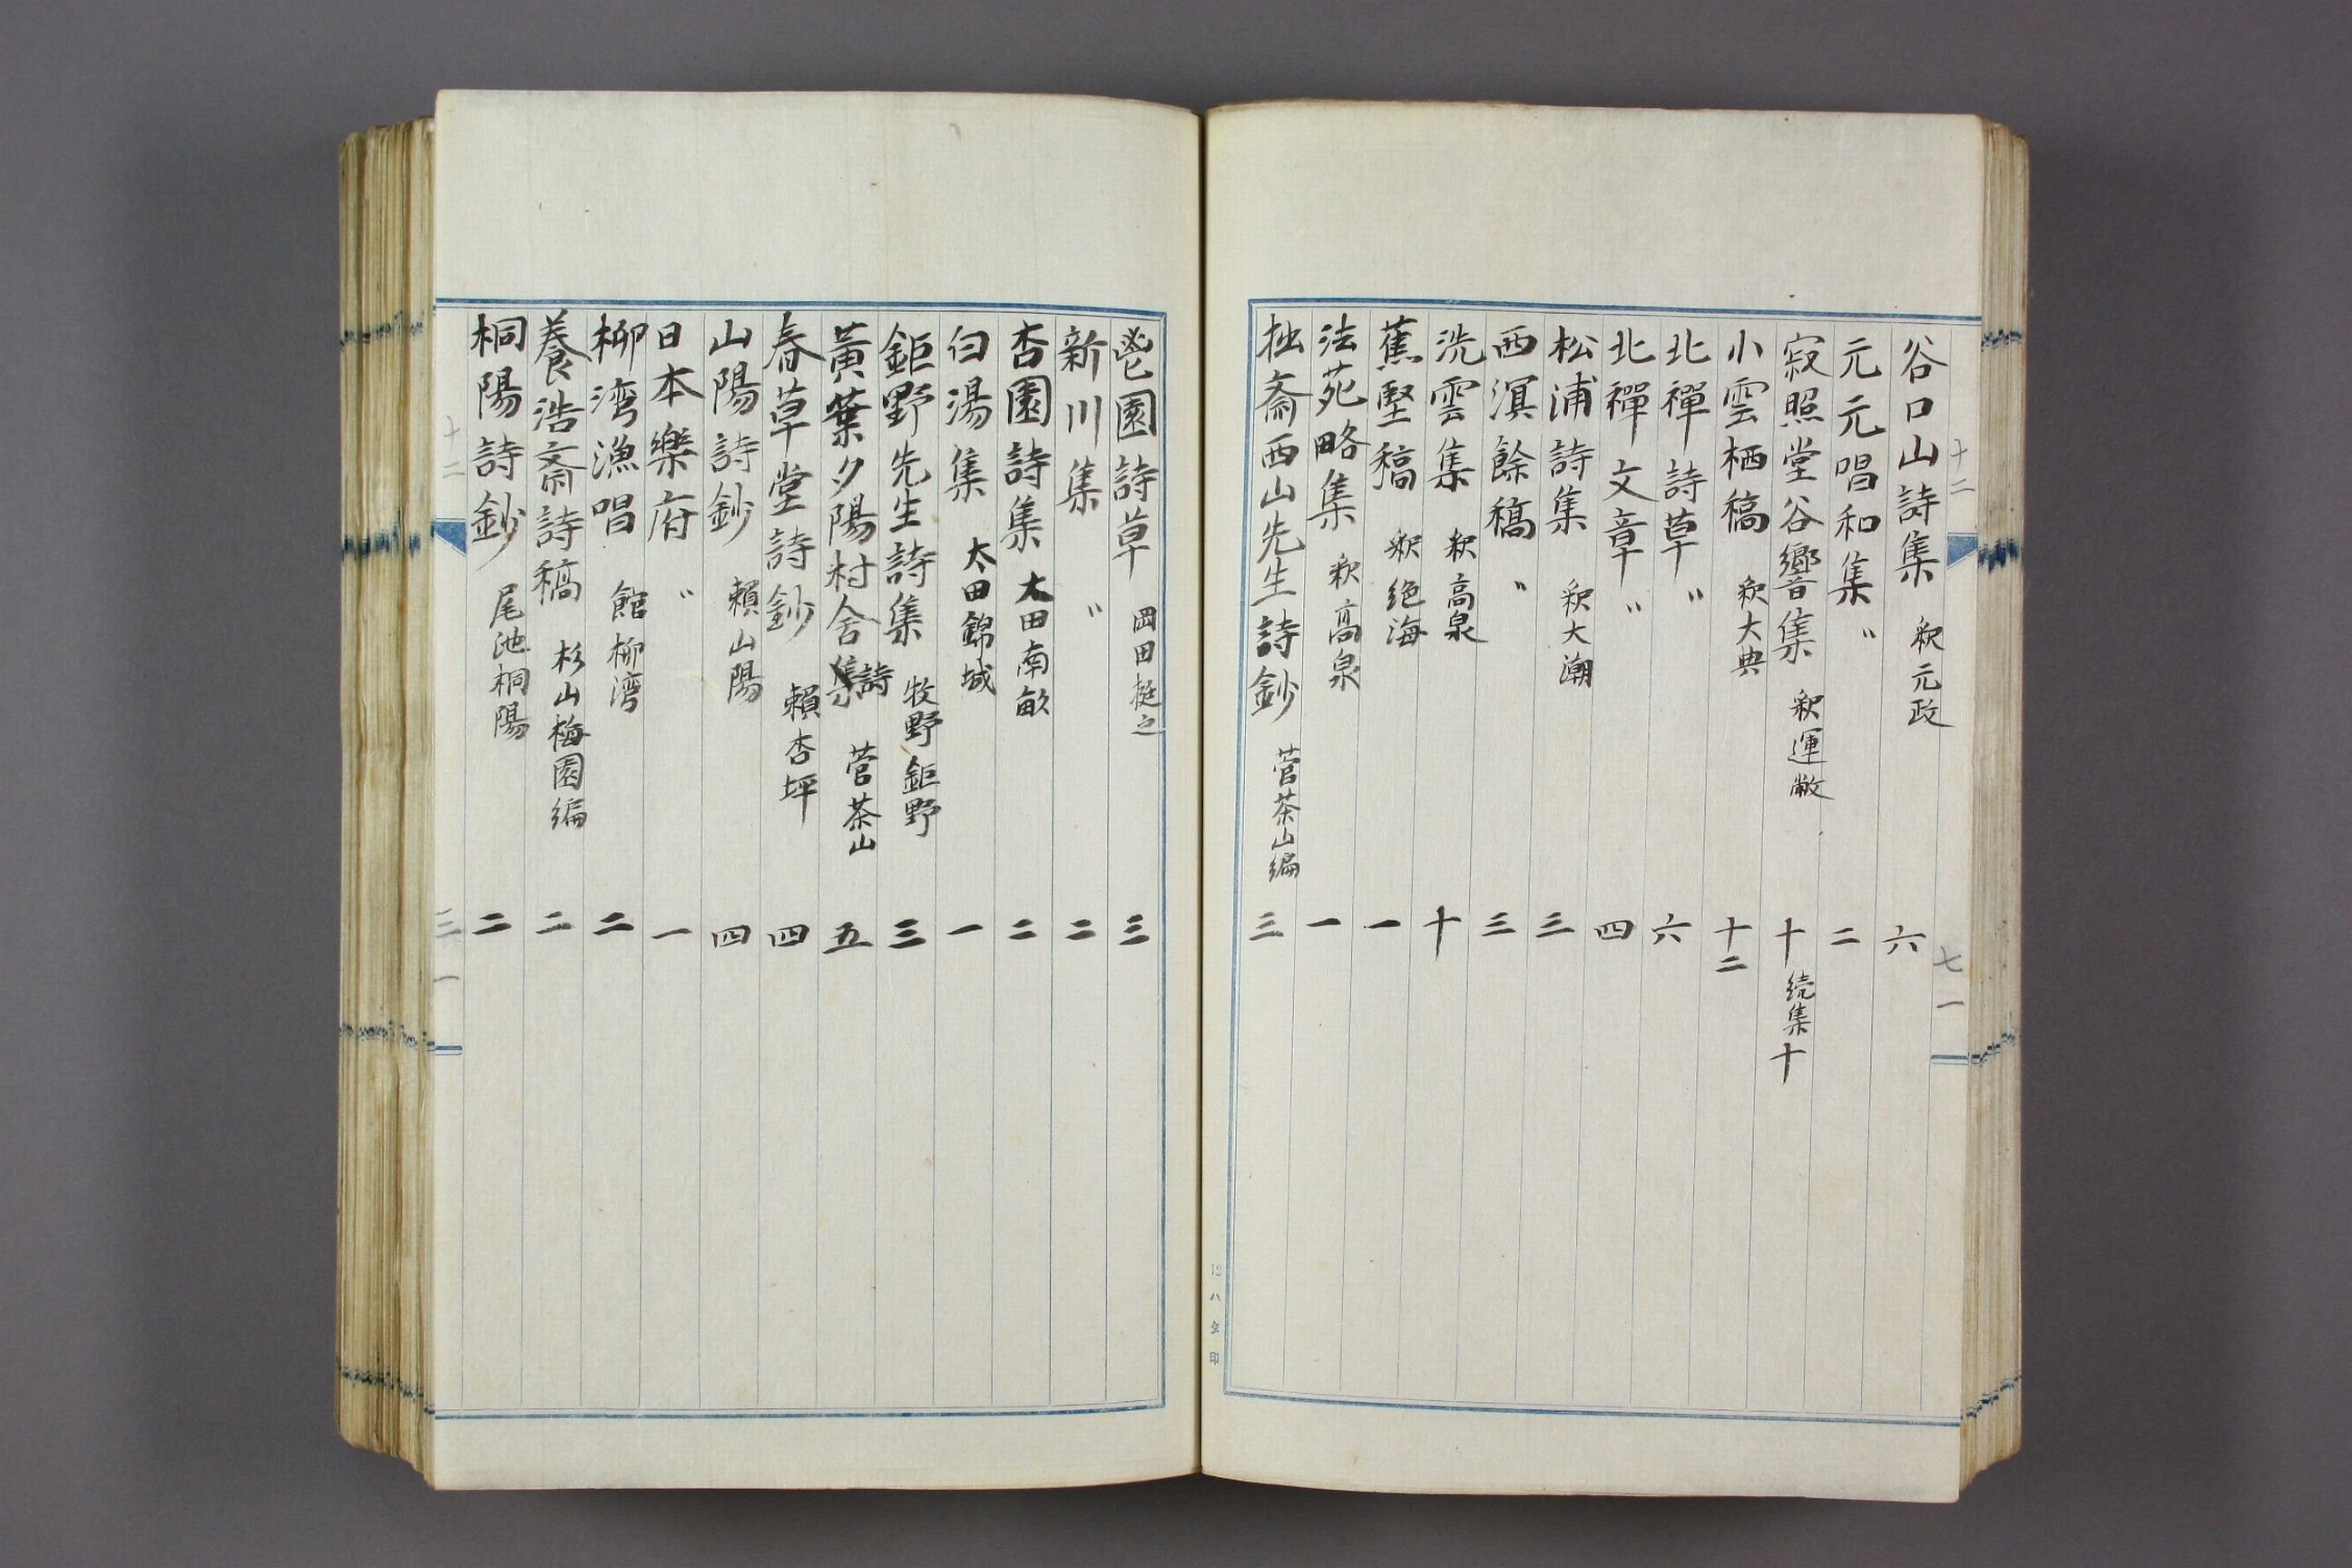 谷口山詩集 釈元政 六
元元唱和集 〃 二
寂照堂谷響集 釈運敞 十 続集十
小雲栖稿 釈大典 十二
北禪詩草 〃 六
北禪文章 〃 四
松浦詩集 釈大潮 三
西溟餘稿 〃 三
洗雲集 釈高泉 十
蕉堅稿 釈絶海 一
法苑略集 釈高泉 一
拙斎西山先生詩鈔 菅茶山編 三
12ハタ印
鬯園詩草 岡田挺之 三
新川集 〃 二
杏園詩集 太田南畝 二
白湯集 太田錦城 一
鉅野先生詩集 牧野鉅野 三
黄葉夕陽村舎詩集 菅茶山 五
春草堂詩鈔 頼杏坪 四
山陽詩鈔 頼山陽 四
日本樂府 〃 一
柳湾漁唱 館柳湾 二
養浩斎詩稿 杉山梅園編 二
桐陽詩鈔 尾池桐陽 二